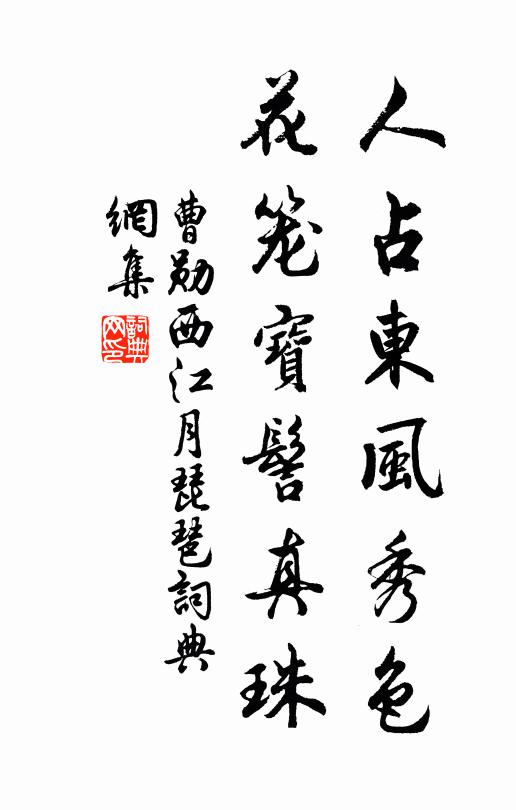 人占東風秀色
花笼寶髻真珠
曹勛西江月琵琶詞典
網集
詞典
网印